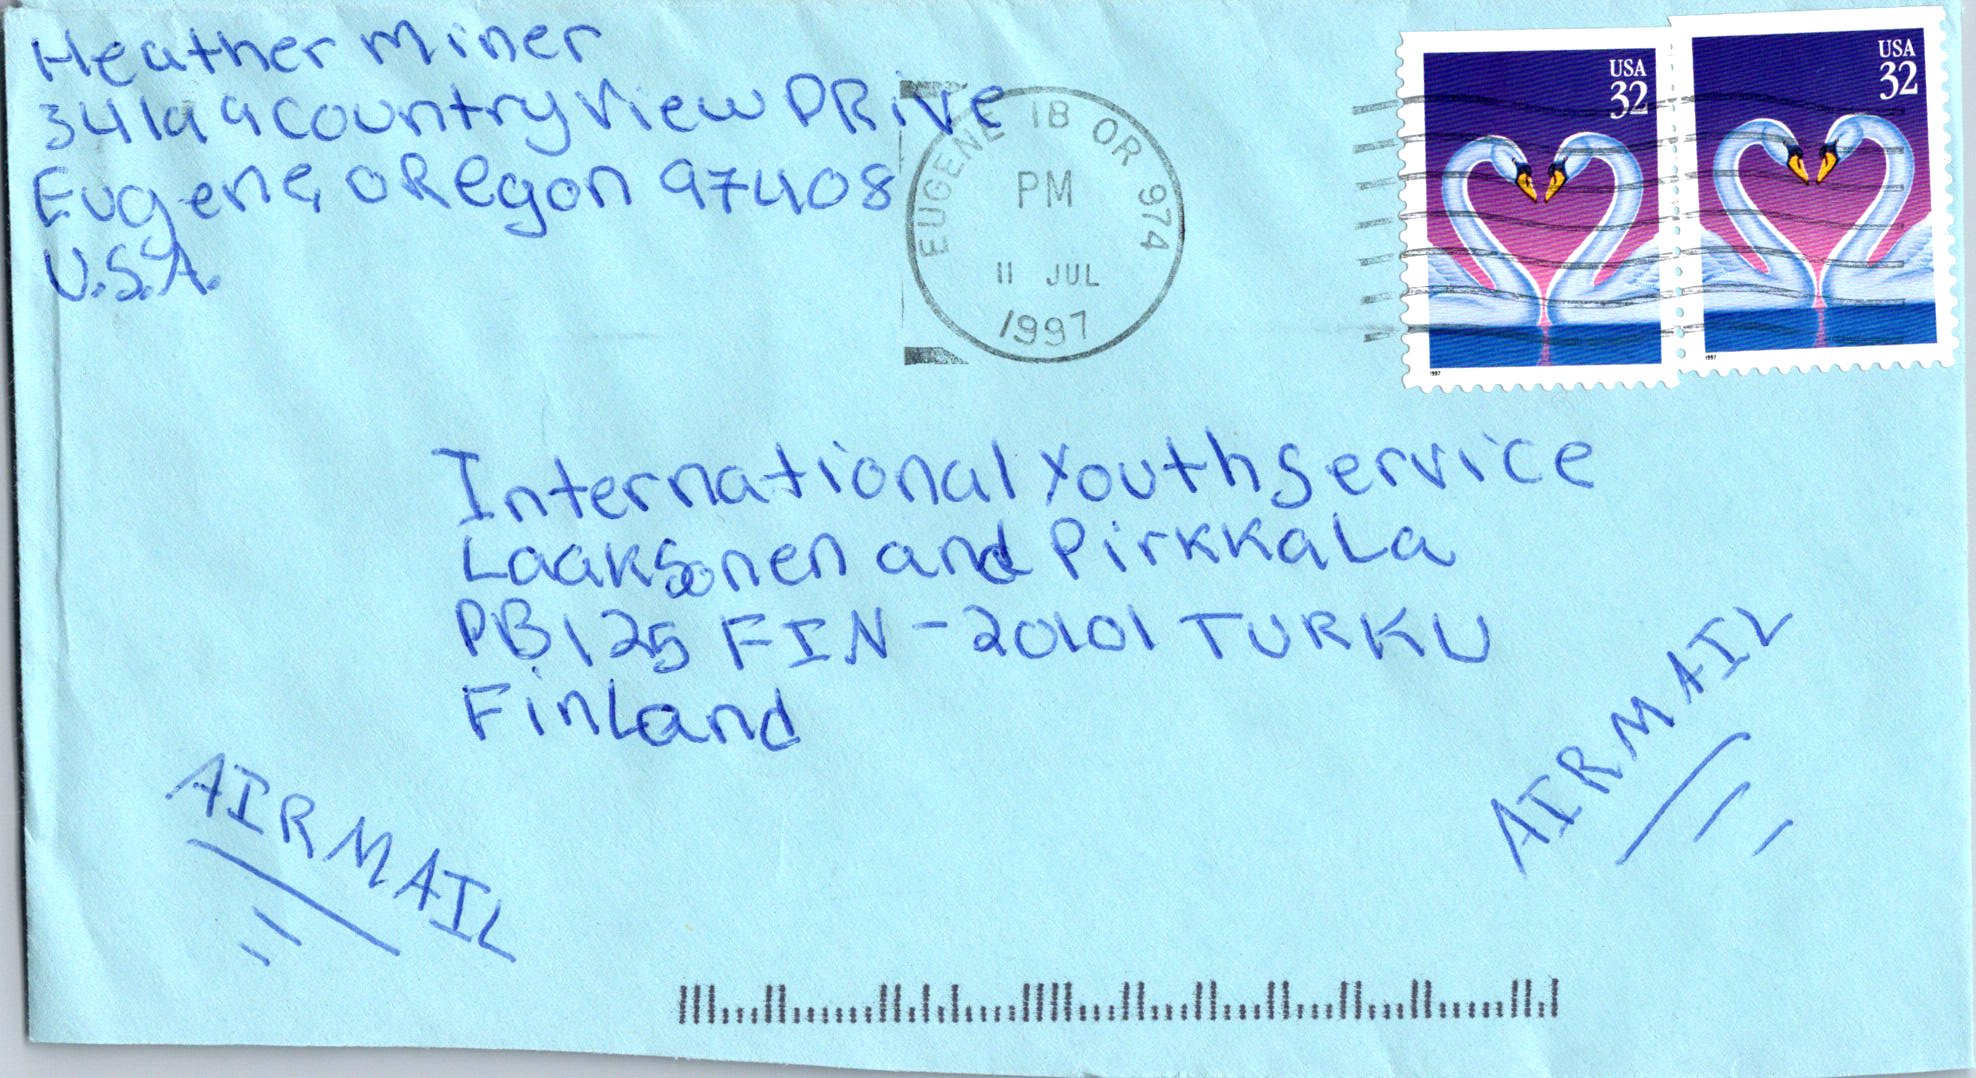 Heather Miner
34199 Country View DRive
Eugene, oRegon 97408
U.S.A.
EUGENE 1B OR 974
PM
11 JUL
1997
USA
32
USA
32
1997
1997
International Youth Service
Laaksonen and PirkkaLa
PB 125 FIN-20101 TURKU
FinLand
AIRMAIL
AIRMAIL